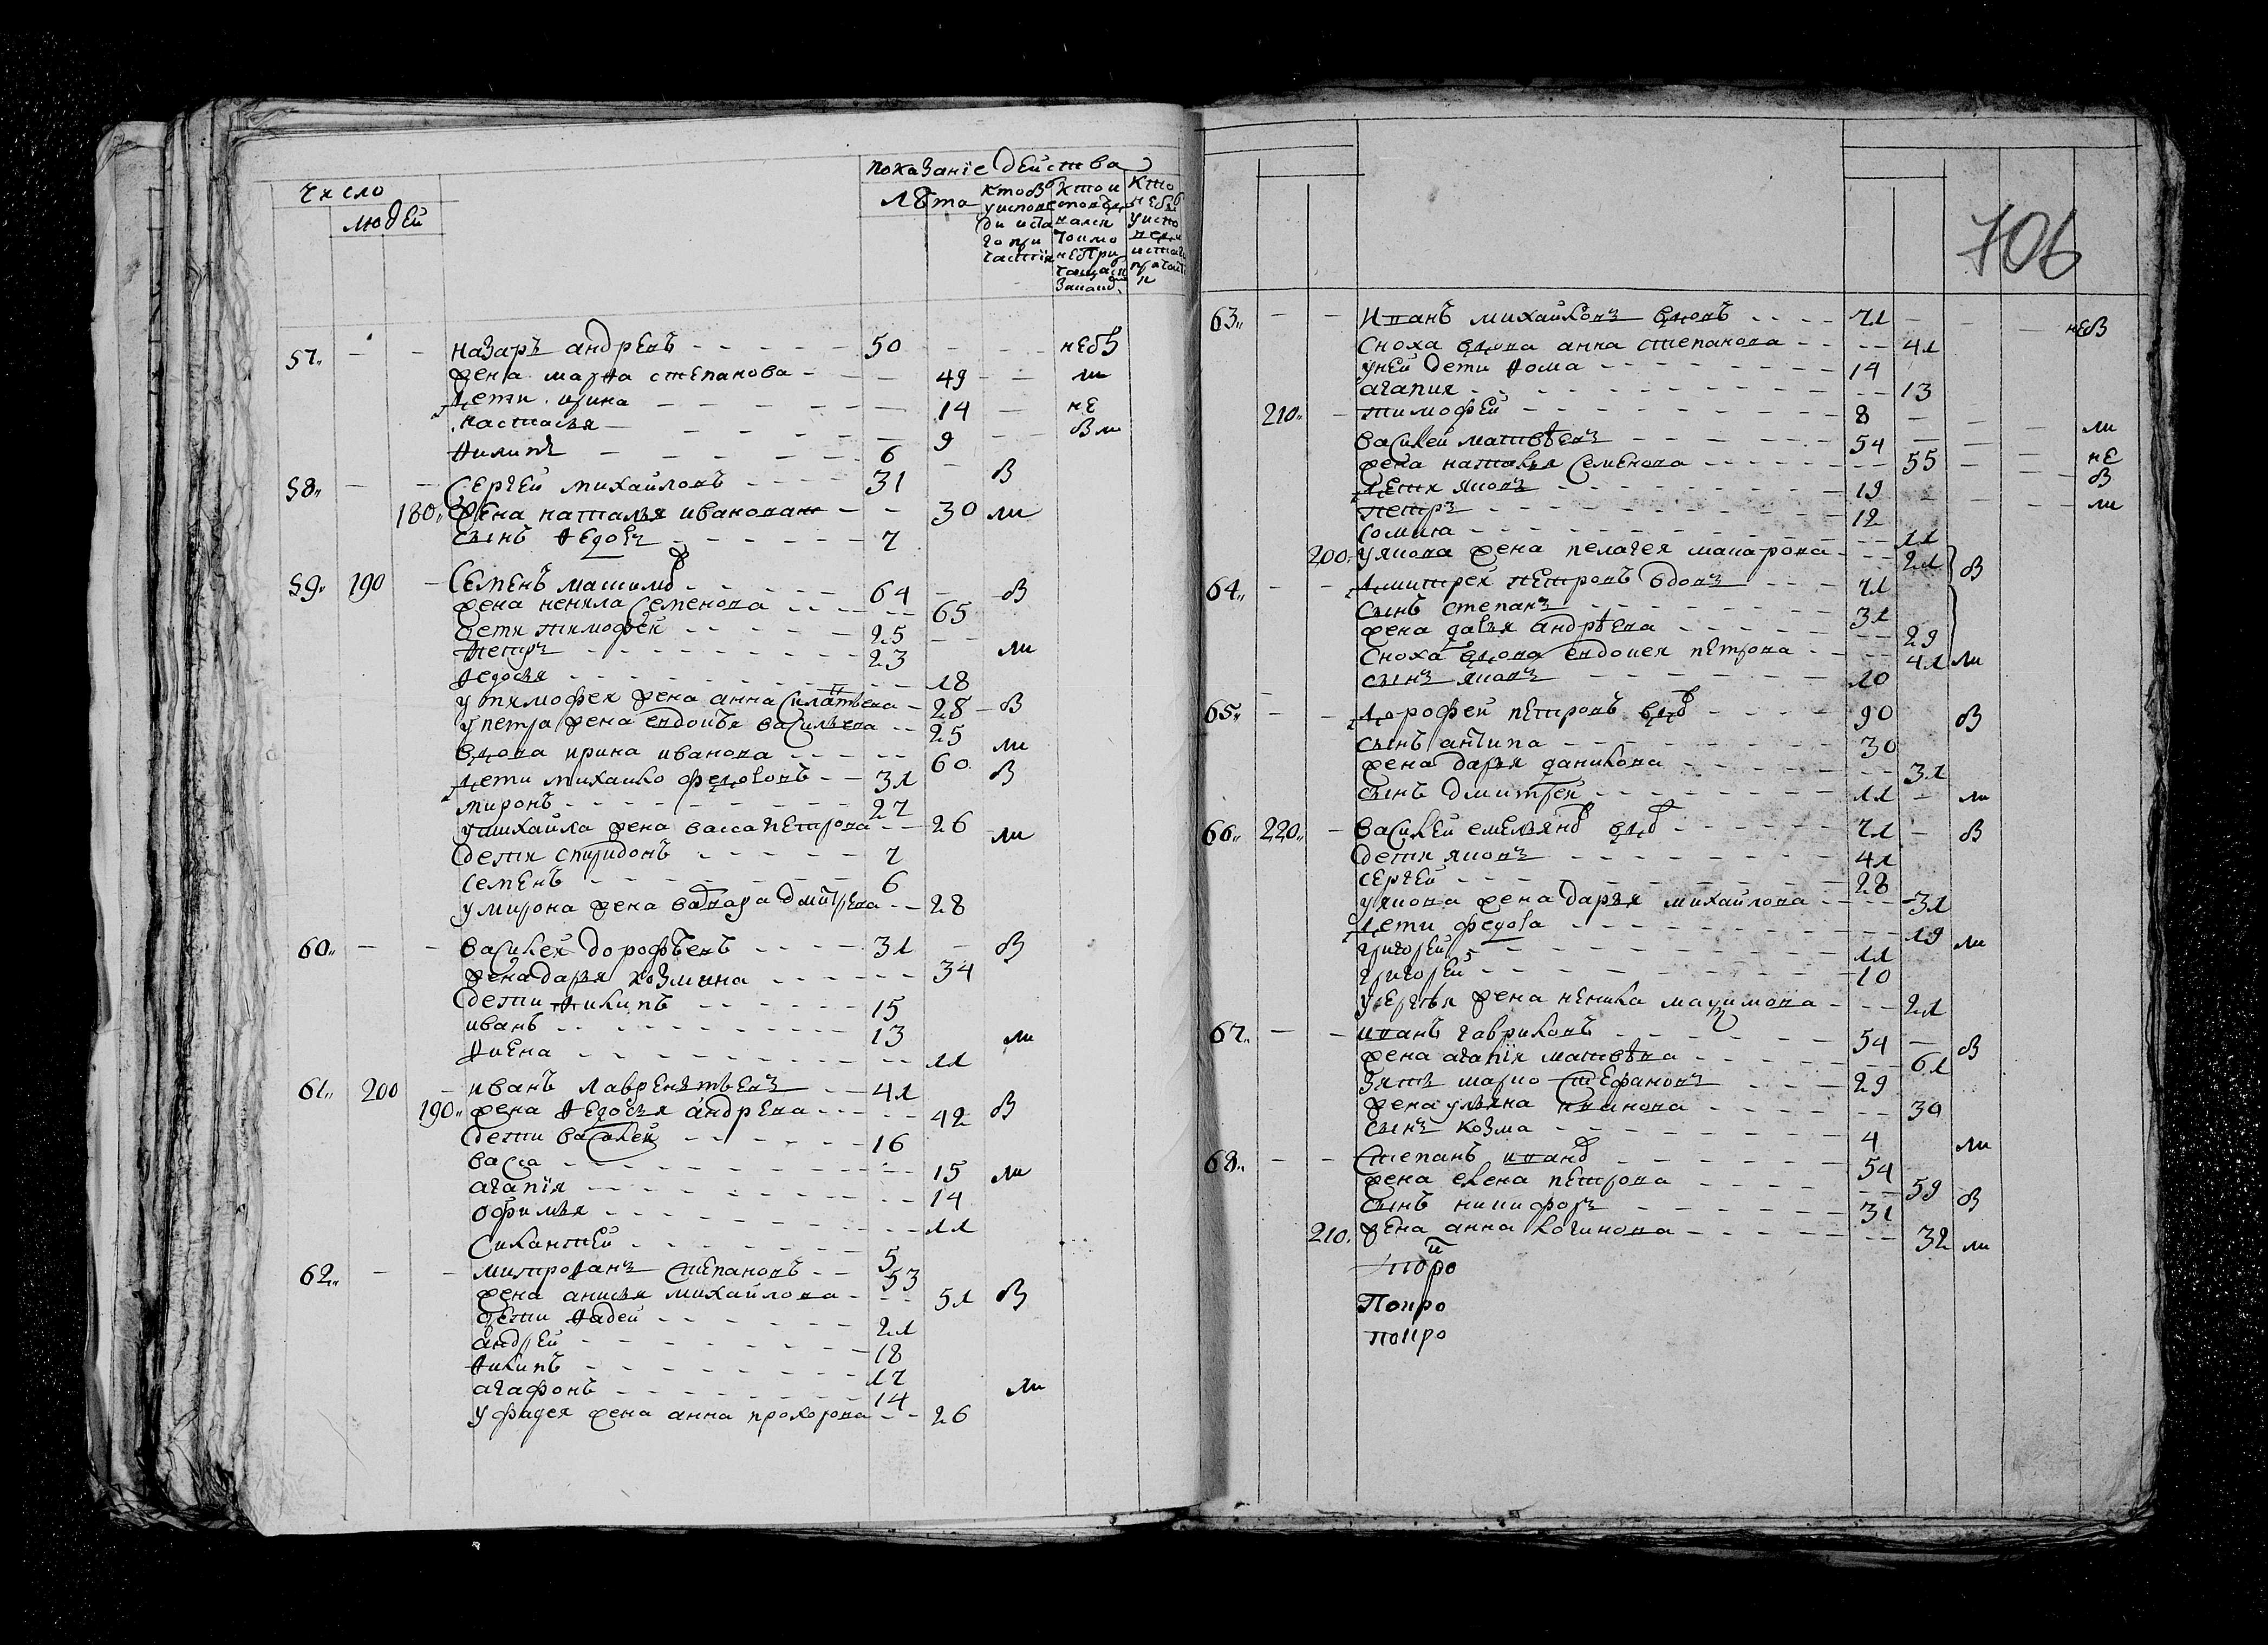 число
людей
показанïе действа
лѣта
57 назаръ андревъ 50 небѣ
жена марθа степанова 49 ли
дети ирина 14 не
настасья 9 вли
θилипъ 6
58 Сергей михайловъ 31 в
180 жена наталья иванована 30 ли
сынъ θедоръ 7
59 190 Семенъ машимо 64 в
жена ненила семенова 65
дети тимофей 25
петръ 23 ли
θедосья 18
у тимофея жена анна 28 в
у петра жена евдокъя васильева 25
вдова ирина иванова 60 ли
дети михайло федоровъ 31 в
миронъ 27
умихайла жена васса петрова 26 ли
дети спиридонъ 7
семенъ 6
у мирона жена вавара дмитрева 28
60 василей дорофѣевъ 31 в
жена дарья козмина 34
дети θилипъ 15
иванъ 13 ли
θиена 11
61 200 иванъ лаврентьевъ 41
190 жена θедосья андрева 42 в
дети василей 16
васса 15 ли
агапïя 14
офимья 11
Силантей 5
62 митроθанъ степановъ 53
жена анисья михайлова 51 в
дети θадей 21
андрей 18
θилипъ 17
агафонъ 14 ли
у фадея жена анна прохорова 26
706
63 иванъ михайловъ вдовъ 71 небв
сноха вдова анна степанова 41
уней дети θома 14
агапия 13
210 тимофей 8 ли
василей матвѣевъ 54 не
жена наталья семенова 55 в
дети яковъ 19 ли
петръ 12
соломия 11
200 уякова жена пелагея макарова 21 в
64 дмитрей петровъ вдовъ 71
сынъ степанъ 31
жена дарья андрѣева 29
сноха вдова евдокея петрова 41 ли
сынъ яковъ 10
65 дорофей петровъ вдо 90 в
сынъ антипа 30
жена дарья данилова 31
сынъ дмитрей 11 ли
66 220 василей емельяно вдо 71 в
дети яковъ 41
сергей 28
уякова жена дарья михайлова 31
дети федора 19 ли
григорей 11
григорей 10
усергѣя жена ненила мазимова 21
67 иванъ гавриловъ 54 в
жена агапïя матвѣва 61
зять марко стефановъ 29
жена ульяна иванова 30
сынъ козма 4 ли
68 степанъ ивано 54
жена елена петрова 59 в
сынъ никифоръ 31
210 жена анна логинова 32 ли
Попро
попро